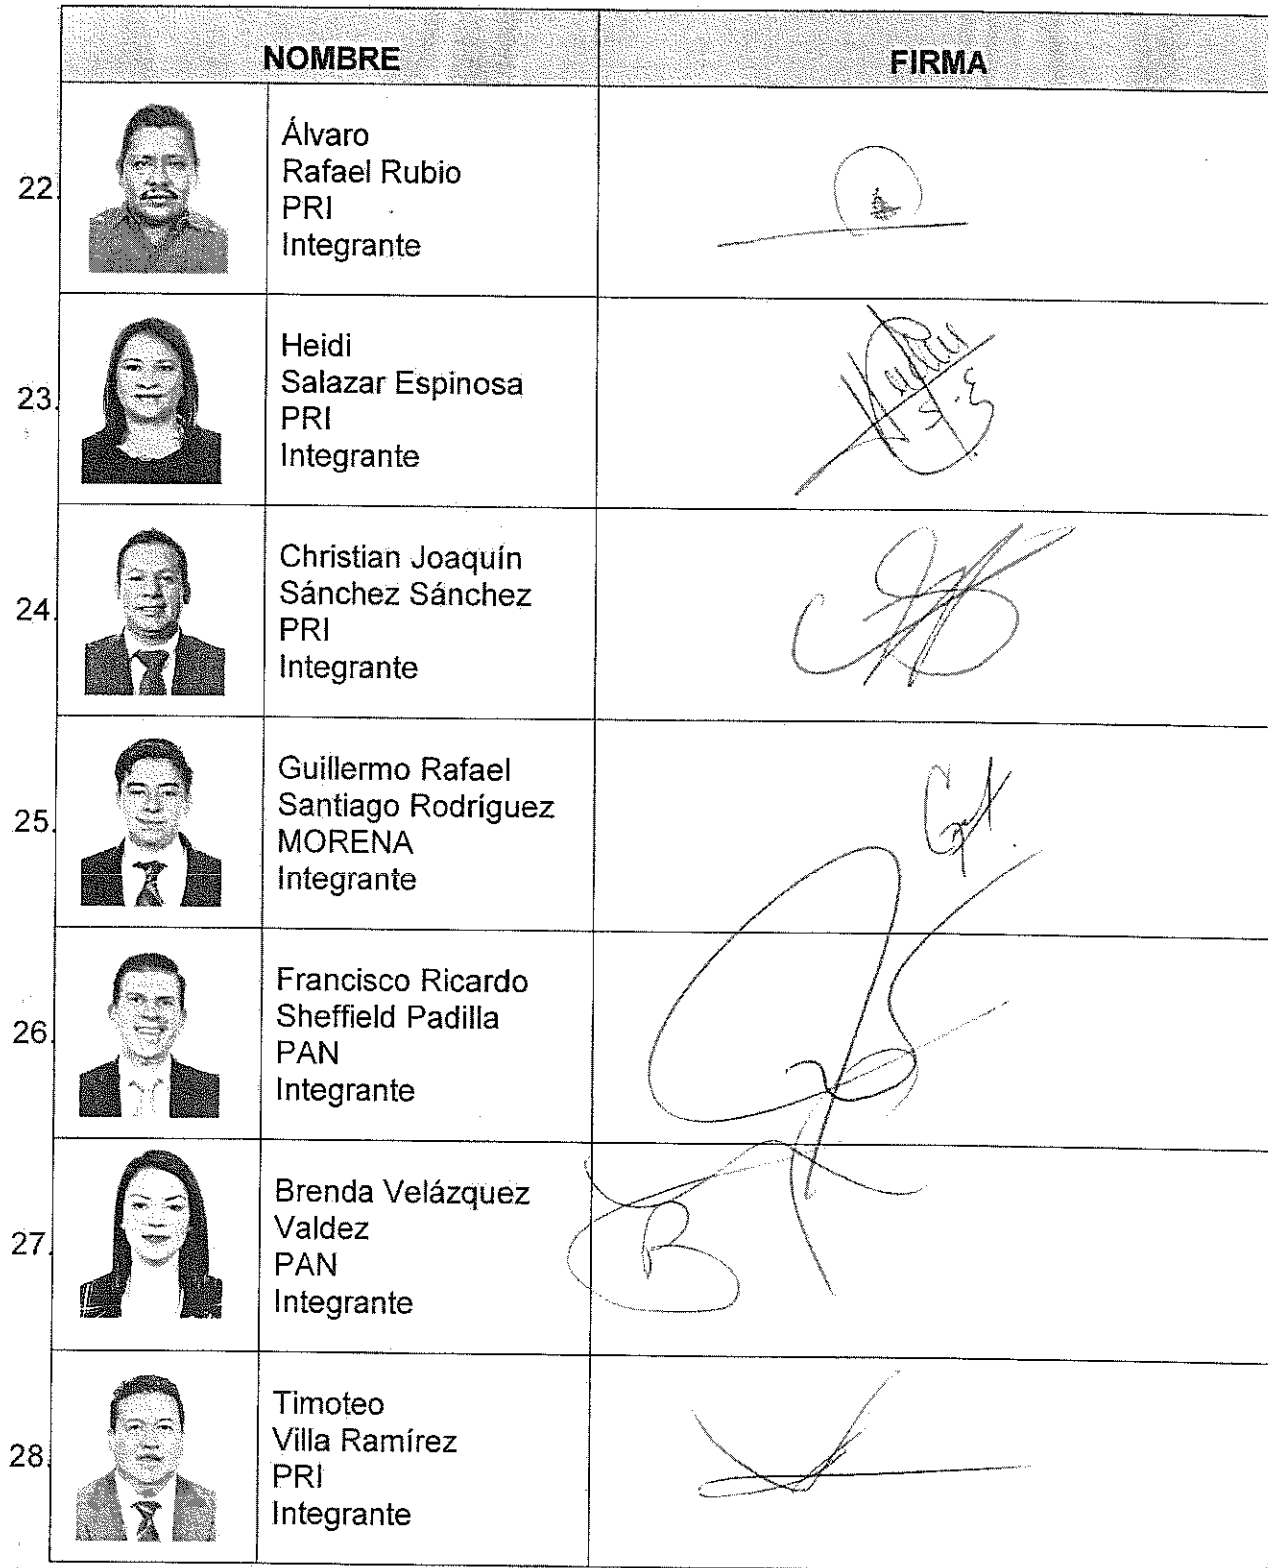 NOMBRE FIRMA
22. Álvaro
Rafael Rubio
PRI
Integrante
23. Heidi
Salazar Espinosa
PRI
Integrante
S.E
24. Christian Joaquín
Sánchez Sánchez
PRI
Integrante
25. Guillermo Rafael
Santiago Rodríguez
MORENA
Integrante
26. Francisco Ricardo
Sheffield Padilla
PAN
Integrante
27. Brenda Velázquez
Valdez
PAN
Integrante
B
28. Timoteo
Villa Ramírez
PRI
Integrante